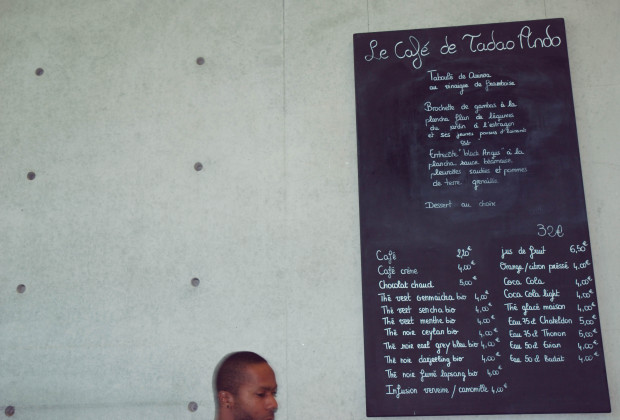 Le Café de Tadao Ando
Taboulé de Quinoa
au vinaigre de framboise
Brochette de gambas à la
plancha flan de légumes
du jardin à l'estragon
et ses jeunes pousses d'
Entrecôte "black Angus" à la
plancha sauce béarnaise,
pleurottes sautées et pommes
de terre grenaille
Dessert au choix
32€
Café 2,20€
Café crème 4,00€
Chocolat chaud 5,00€
Thé vert genmaicha bio 4,00€
Thé vert sencha bio 4,00€
Thé vert menthe bio 4,00€
Thé noir ceylan bio 4,00€
Thé noir earl grey bleu bio 4,00€
Thé noir darjeeling bio 4,00€
Thé noir fumé lapsang bio 4,00€
Infusion verveine / camomille 4,00€
jus de fruit 6,50€
Orange/citron pressé 4,00€
Coca Cola 4,00€
Coca Cola light 4,00€
Thé glacé maison 4,00€
Eau 75cl Chateldon 5,00€
Eau 75cl Thonon 5,00€
Eau 50cl Evian 4,00€
Eau 50cl Badoit 4,00€